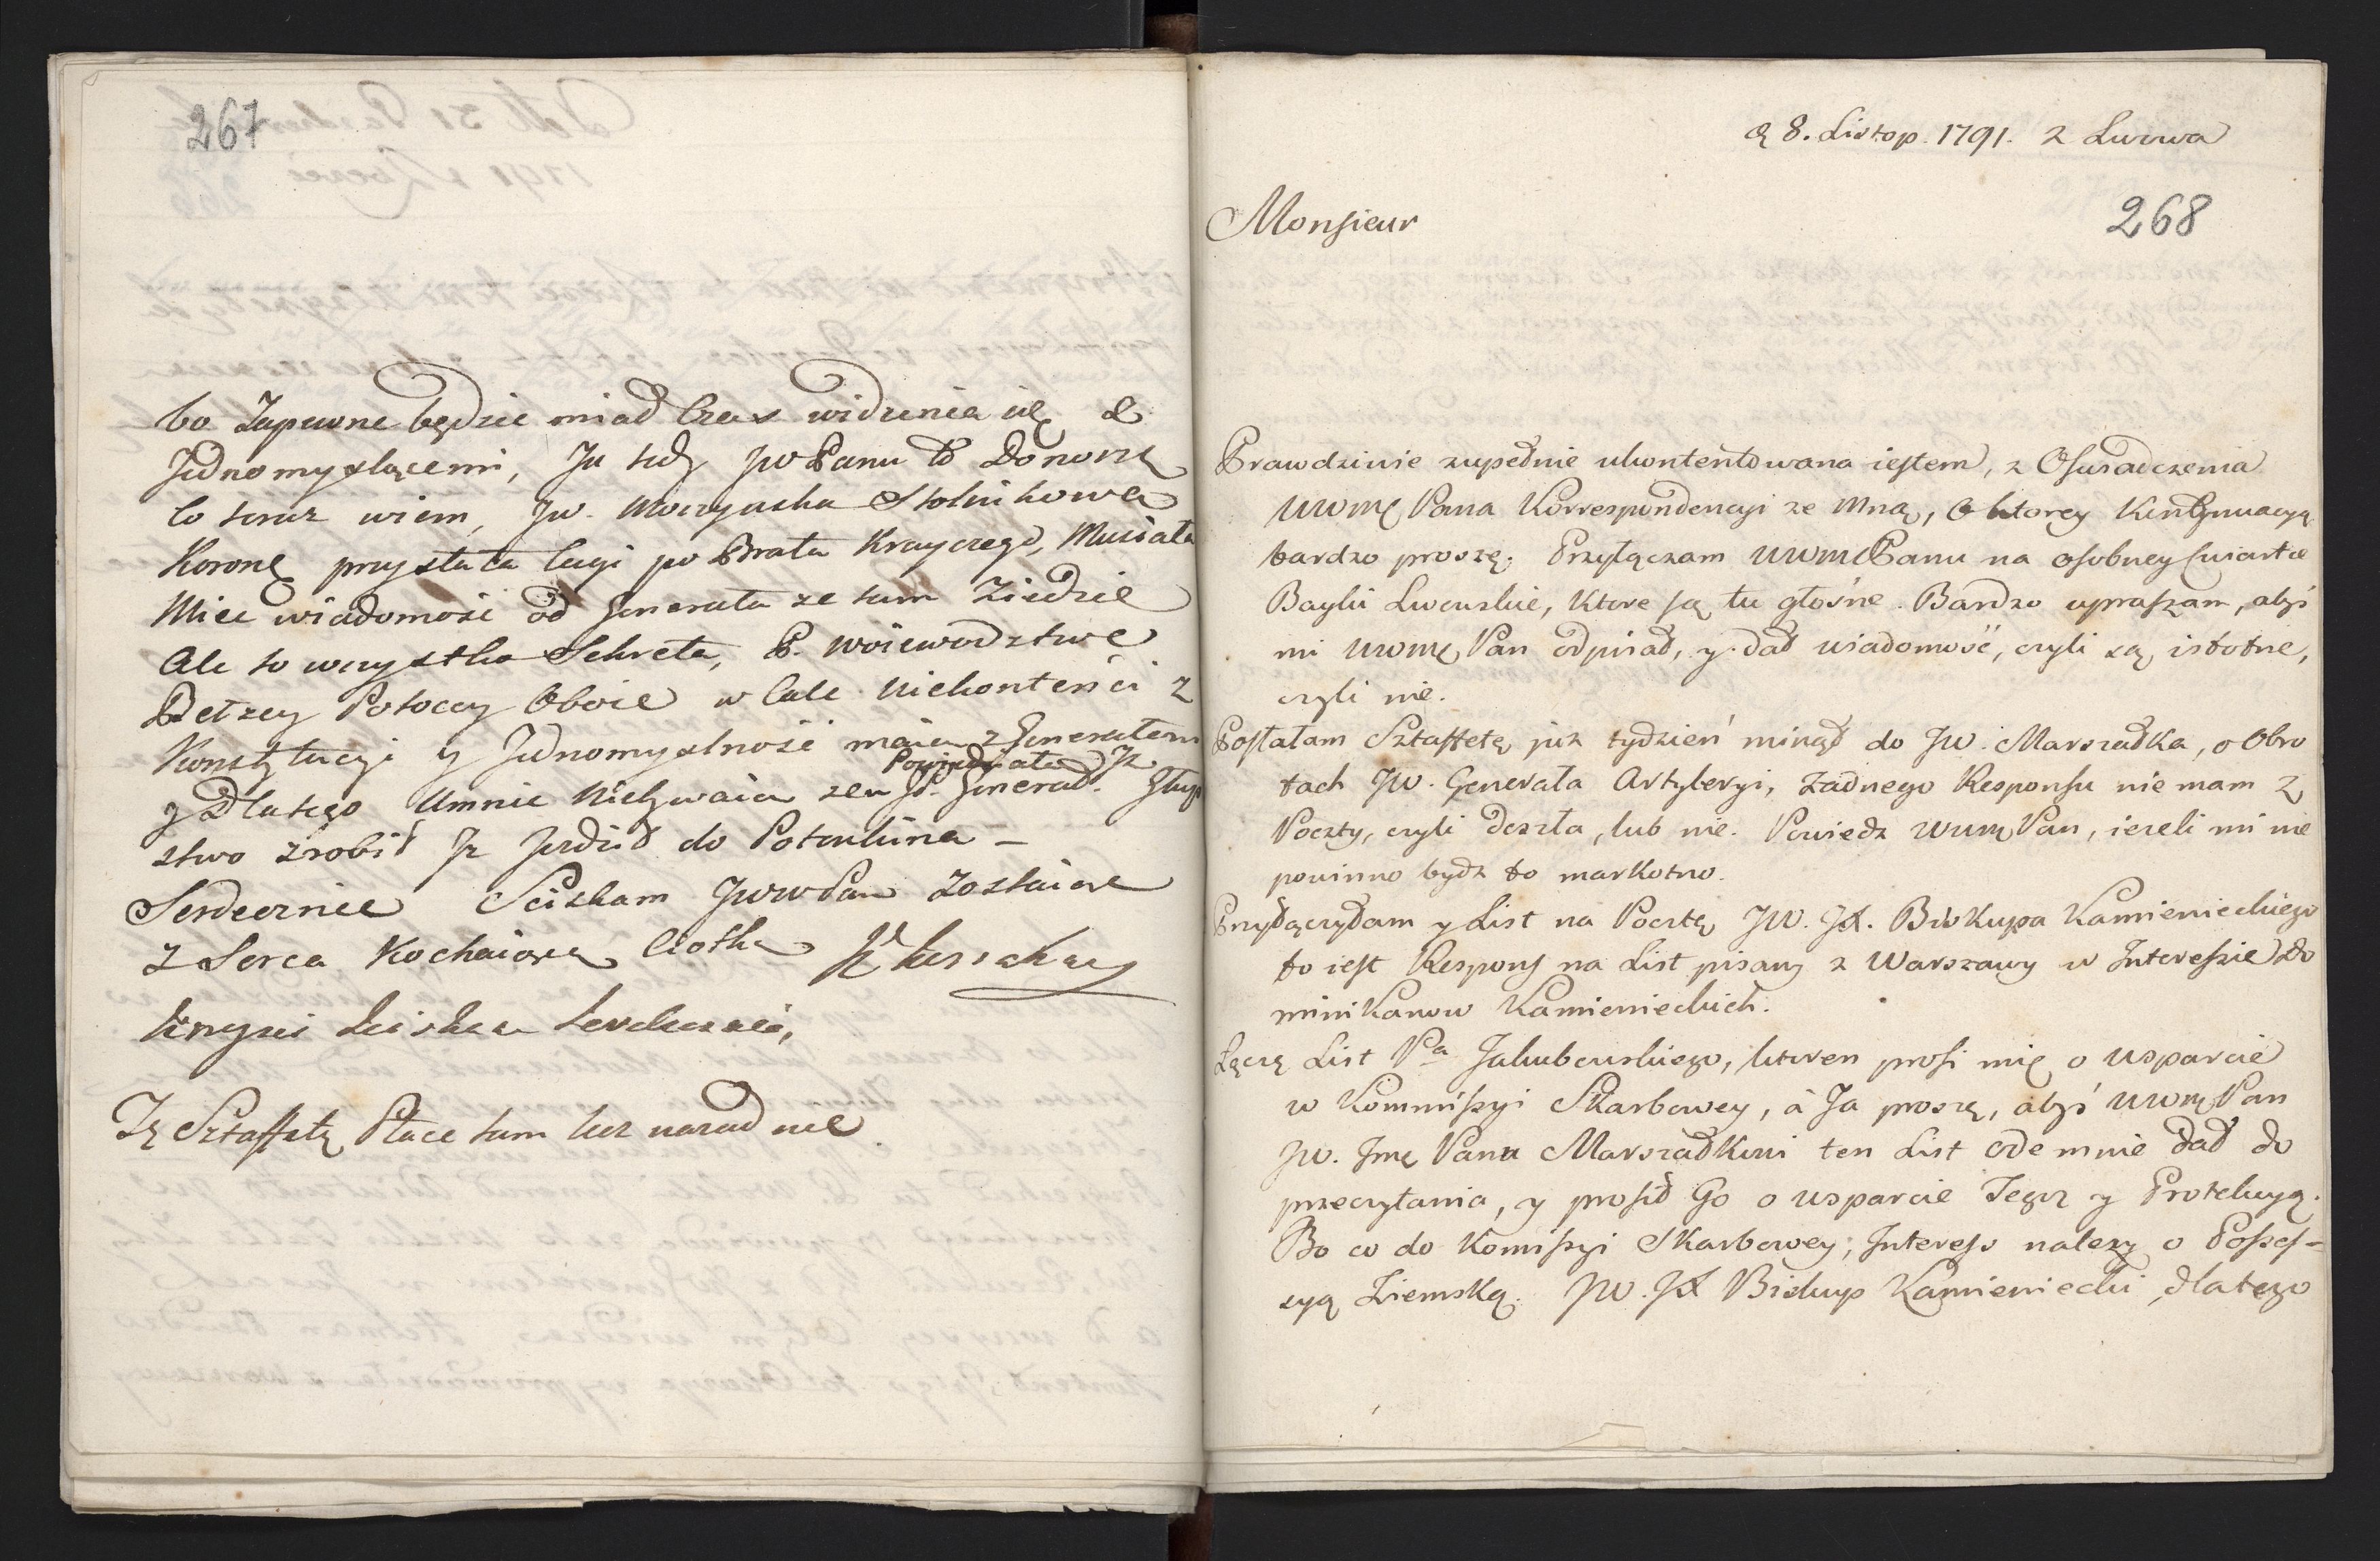 267
bo Zapewne będzie miał Czas widzenia się z
Jednomyslącemi, Ja tedy JW Panu to Donoszę
Co teraz wiem, Jw. Moszynska Stolnikowa
Koronę przystała Cugi po Brata Krayczego, Musiała
Miec wiadomość od Generała ze tam Ziedzie
Ale to wszystko Sekreta, P. woiewodztwo
Bełzcy Potoccy Oboie w Cale Niekontenci z
Konstytucyi y Jednomyslność maią z Generałem
y Dlatego Umnie Niebywaią Powiedziała Jz
zem JP. Generał. Głup
stwo zrobił Jz Jezdził do Potemkina –
Serdecznie Sciskam JWW Pan Zostaiąc
z Serca Kochaiącą Ciotką Kossakows
Krzysi sciskam serdecznie,
Tę Sztaffetę Płace tam lecz nazad nie
ą 8. Listop. 1791. z Lwowa
268
Monsieur
Prawdziwie zupełnie ukontentowana iestem, z Oswiadczenia
WWMę Pana Korrespondencyi ze Mną, O ktorey Kontynuacyą
bardzo proszę. Przyłączam WWMć Panu na osobney Cwiartce
Bayki Lwowskie, Ktore są tu głośne. Bardzo upraszam, abyś
mi WWMę Pan odpisał, y dał wiadomość, czyli są istotne,
czyli nie.
Posłałam Sztaffetę już tydzień minął do JW. Marszałka, o Obro
tach JW. Generała Artyleryi, żadnego Responsu nie mam z
Poczty, czyli doszła, lub nie. Powiedz WWMę Pan, ieżeli mi nie
powinno bydz to markotno.
Przyłączyłam y List na Pocztę JW. JX. Biskupa Kamienieckiego
to iest Respons na List pisany z Warszawy w Interessie Do
minikanow Kamienieckich.
Łączę List Pa Jakubowskiego, ktoren prosi mię o wsparcie
w Kommissyi Skarbowey, à Ja proszę, abyś WWMę Pan
JW. Jmę Panu Marszałkowi ten List odemnie dał do
przeczytania, y prosił Go o wsparcie Jego y Protekcyą.
Bo co do Komissyi Skarbowey, Interess należy o Posses-
syą Ziemską. JW. JX Biskup Kamieniecki, dlatego